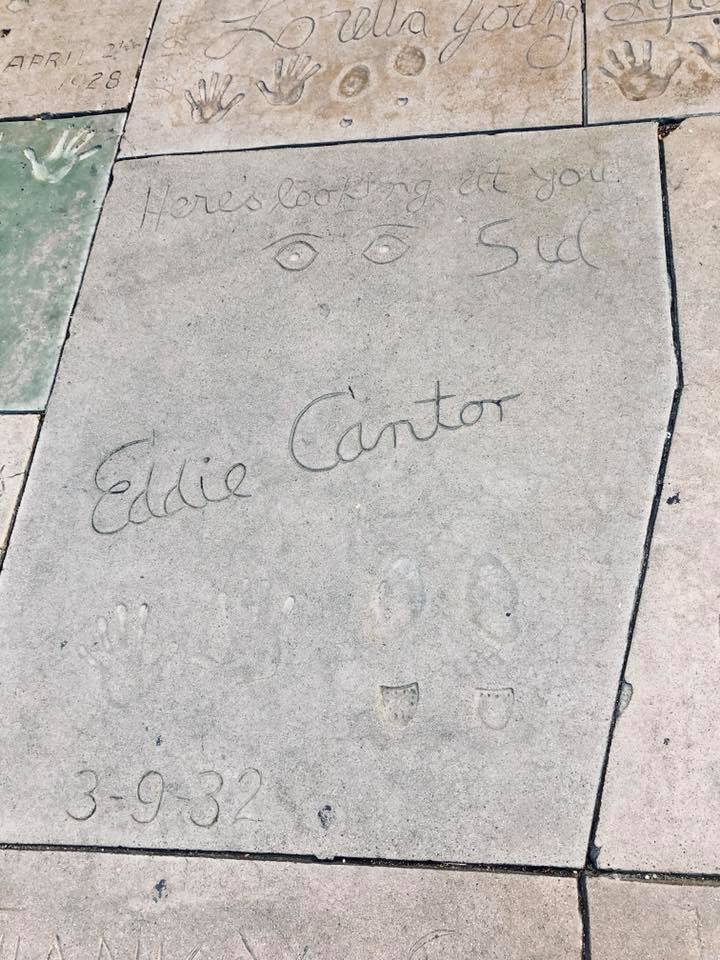 Loretta Young
APRIL 2
1928
Here's looking at you
Sid
Eddie Cantor
3-9-32